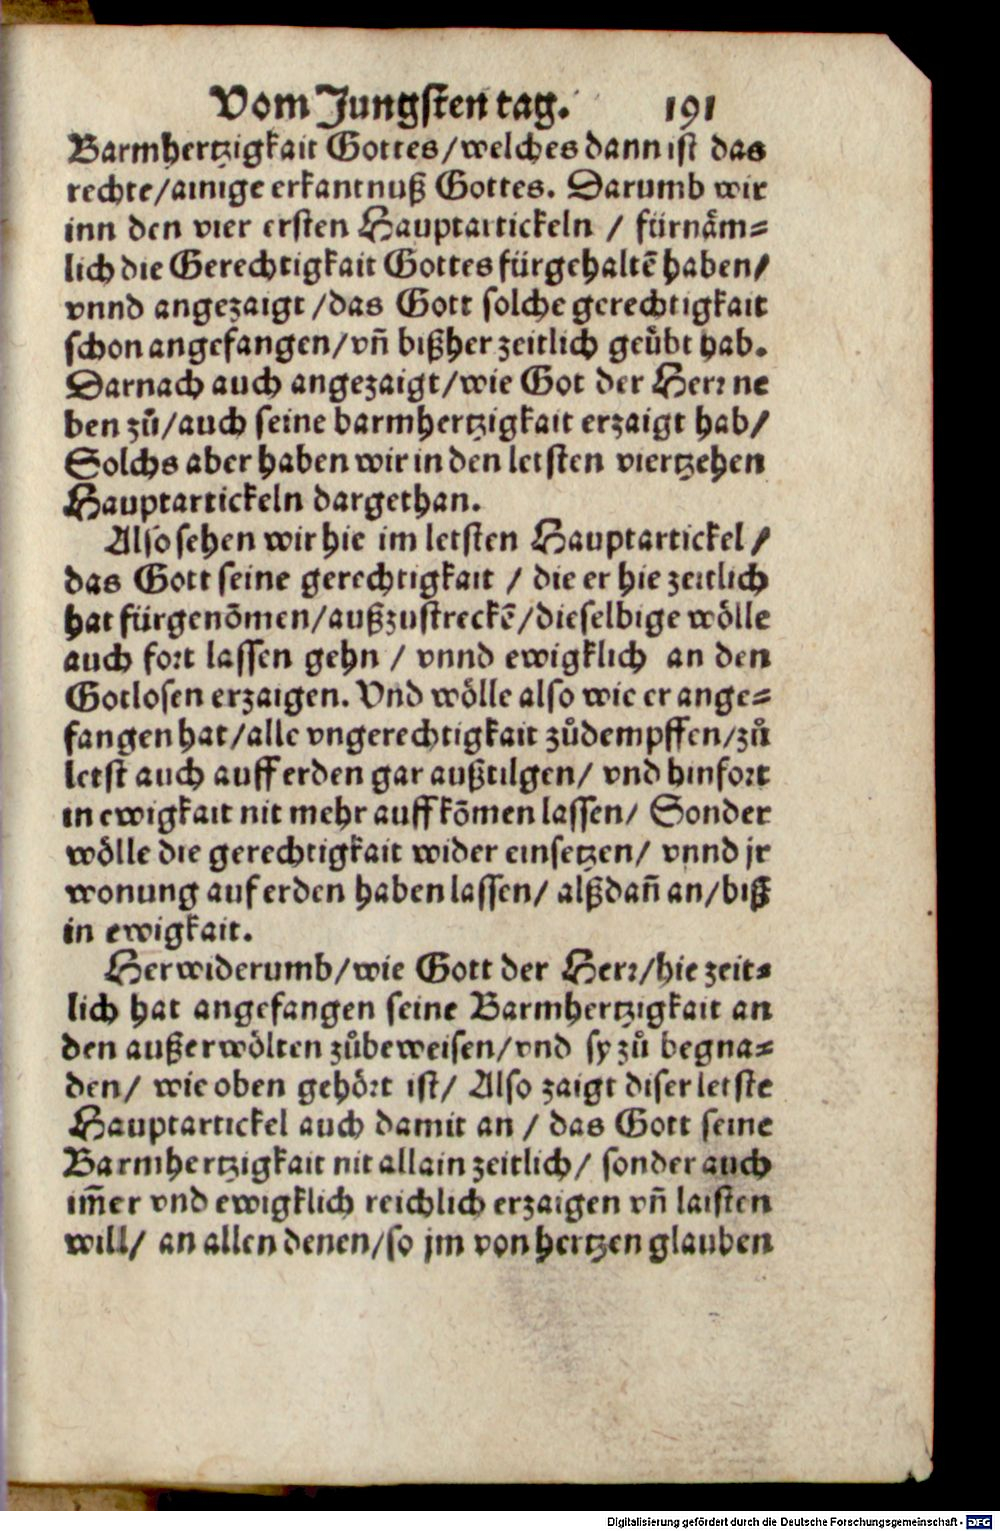 Vom Jungsten tag. 191
Barmhertzigkait Gottes/welches dann ist das
rechte/ainige erkantnuß Gottes. Darumb wir
inn den vier ersten Hauptartickeln / fürnäm=
lich die Gerechtigkait Gottes fürgehaltē haben/
vnnd angezaigt /das Gott solche gerechtigkait
schon angefangen/vñ bißher zeitlich geübt hab.
Darnach auch angezaigt/wie Got der Herr ne
ben zů/auch seine barmhertzigkait erzaigt hab/
Solchs aber haben wir in den letsten viertzehen
Hauptartickeln dargethan.
Also sehen wir hie im letsten Hauptartickel /
das Gott seine gerechtigkait / die er hie zeitlich
hat fürgenōmen/außzustreckē/dieselbige wölle
auch fort lassen gehn / vnnd ewigklich an den
Gotlosen erzaigen. Vnd wölle also wie er ange=
fangen hat/alle vngerechtigkait zůdempffen/zů
letst auch auff erden gar außtilgen/ vnd hinfort
in ewigkait nit mehr auffkōmen lassen/ Sonder
wölle die gerechtigkait wider einsetzen/ vnnd jr
wonung auf erden haben lassen/ alßdañ an/biß
in ewigkait.
Herwiderumb/wie Gott der Herr/hie zeit=
lich hat angefangen seine Barmhertzigkait an
den außerwölten zůbeweisen/vnd sy zů begna=
den/ wie oben gehört ist/ Also zaigt diser letste
Hauptartickel auch damit an / das Gott seine
Barmhertzigkait nit allain zeitlich/ sonder auch
im̃er vnd ewigklich reichlich erzaigen vñ laisten
will/ an allen denen/so jm von hertzen glauben
Digitalisierung gefördert durch die Deutsche Forschungsgemeinschaft - DFG